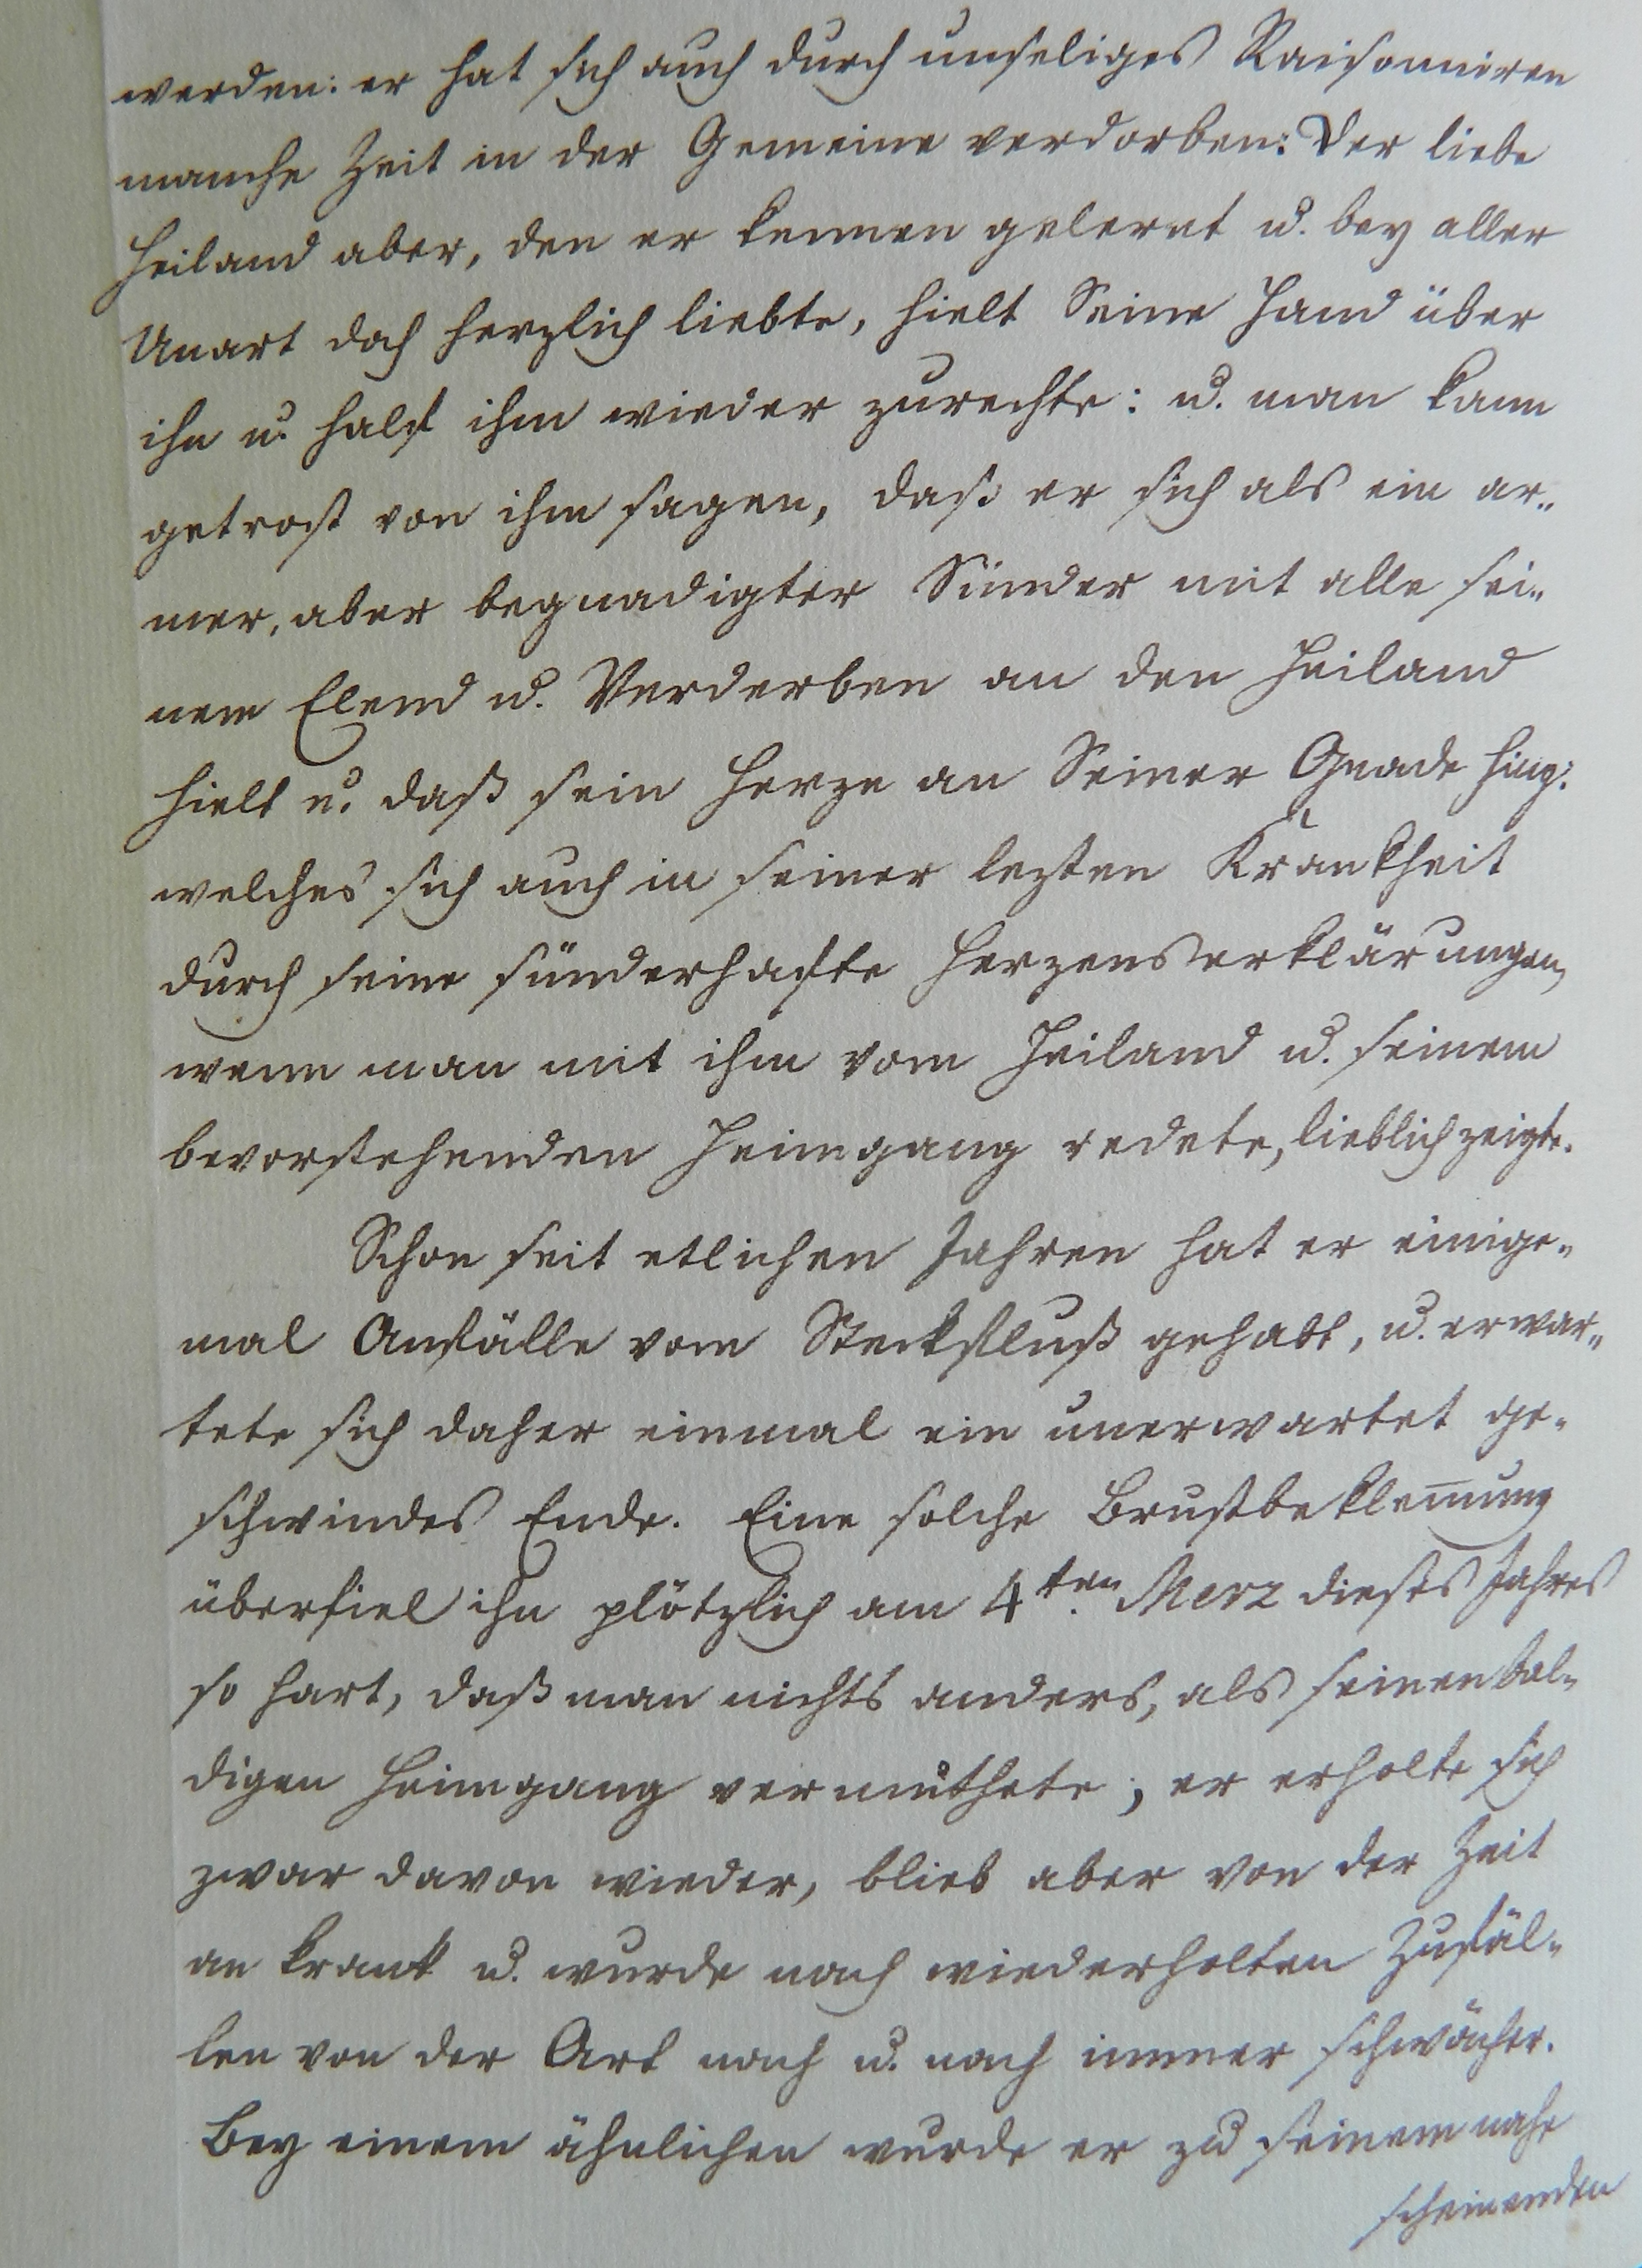 werden: er hat sich auch durch unseliges Raisonniren
manche Zeit in der Gemeine verdorben: Der liebe
Heiland aber, den er kennen gelernt u. bey aller
Unart doch herzlich liebte, hielt Seine Hand über
ihn u. half ihm wieder zurechte: u. man kann
getrost von ihm sagen, daß er sich als ein ar„
mer, aber begnadigter Sünder mit alle sei„
nem Elend u. Verderben an den Heiland
hielt u. daß sein Herze an Seiner Gnade hing:
welches sich auch in seiner lezten Krankheit
durch seine sünderhafte Herzenserklärungen,
wenn man mit ihm vom Heiland u. seinem
bevorstehenden Heimgang redete, lieblich zeigte.
Schon seit etlichen Jahren hat er einige„
mal Anfälle vom Steckfluß gehabt, u. erwar„
tete sich daher einmal ein unerwartet ge„
schwindes Ende. Eine solche Brustbeklem̅ung
überfiel ihn plötzlich am 4ten Merz dieses Jahres
so hart, daß man nichts anders, als seinen bal„
digen Heimgang vermuthete; er erholte sich
zwar davon wieder, blieb aber von der Zeit
an krank u. wurde nach wiederholten Zufäl„
len von der Art nach u. nach immer schwächer.
Bey einem ähnlichen wurde er zu seinem nahe
scheinenden